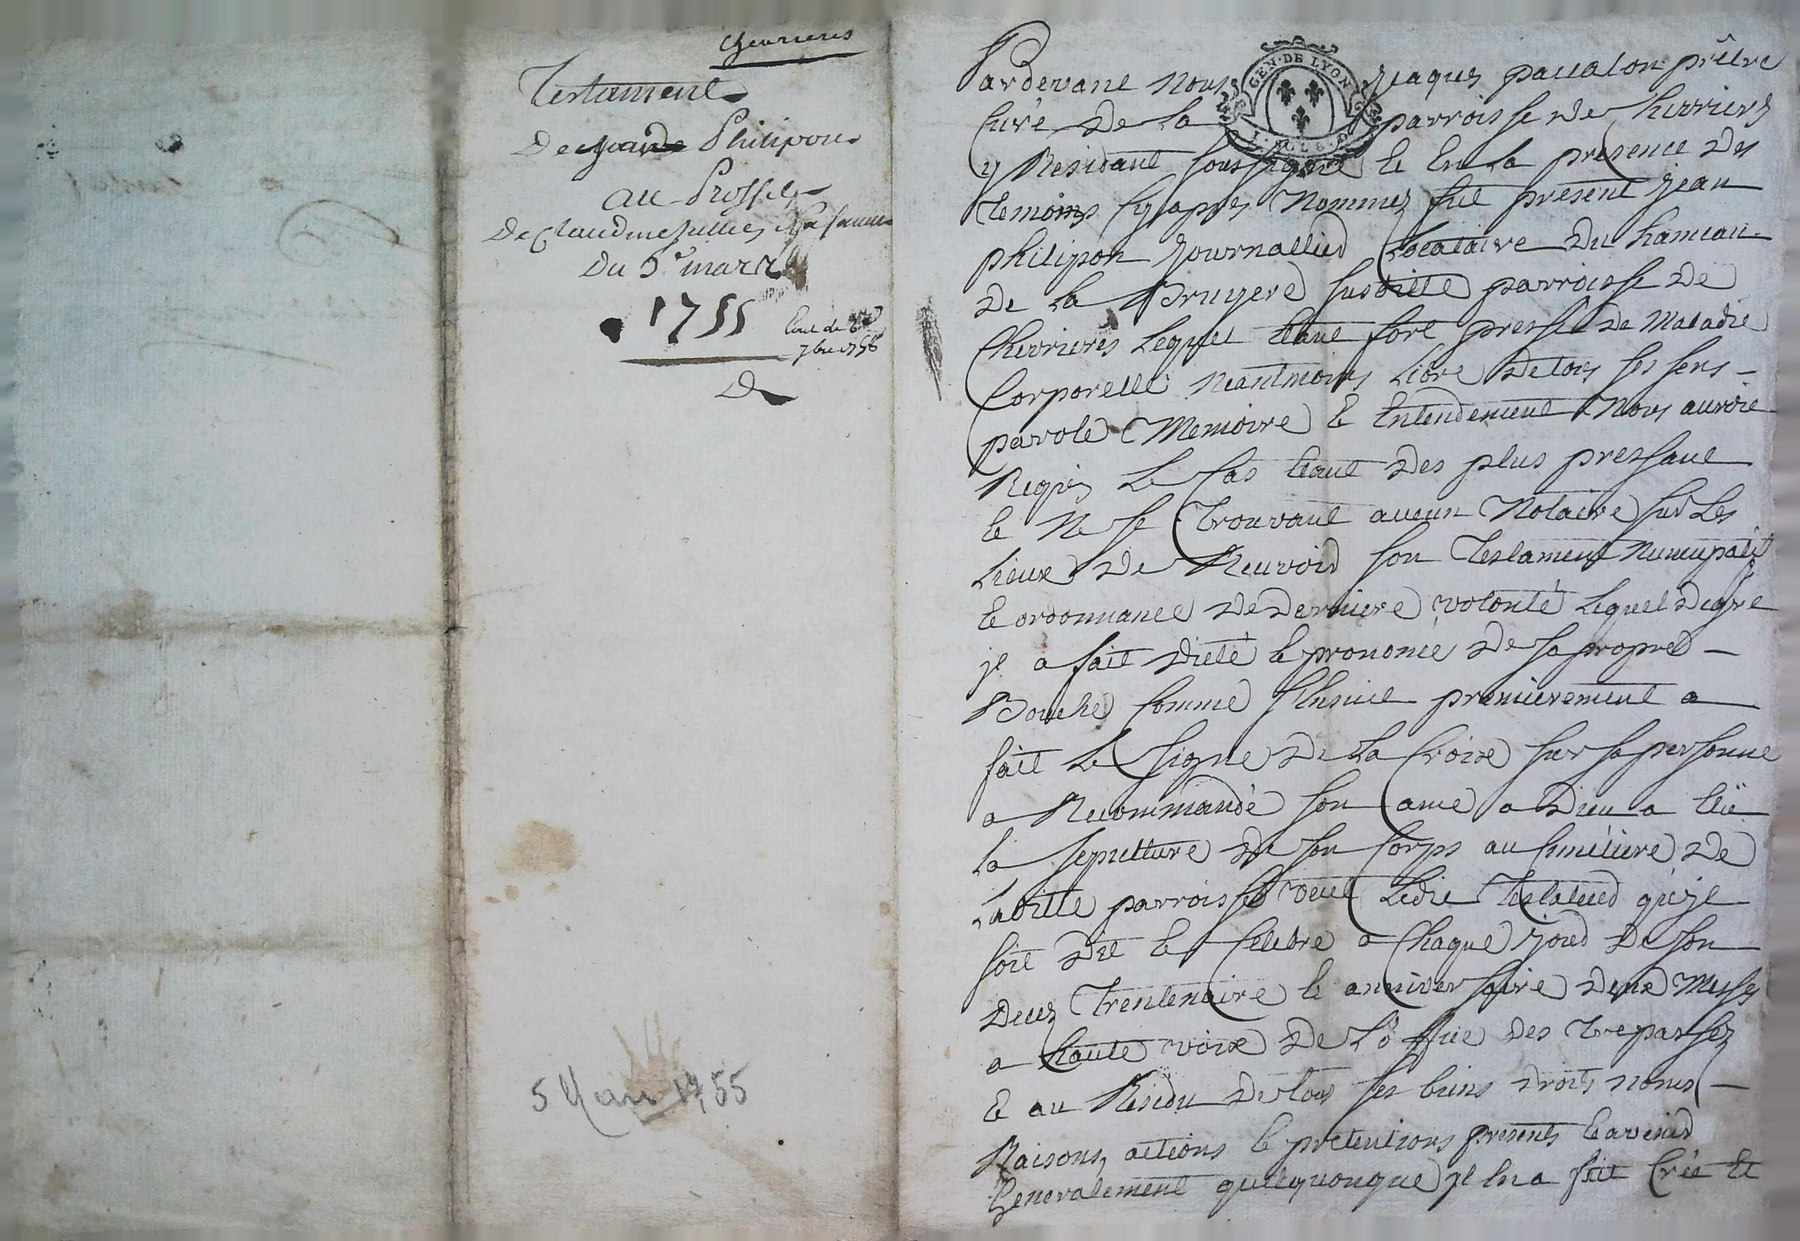 Chevrieres
Testament
De Jean Philipon
au Proffit
De Claudine Jullien Sa femme
Du 5e mars
1755
7bre 1758
5 Mars 1755
GEN. DE LYON
Pardevant Nous Jaques pavalon prêtre
Curé De La parroisse De Chevrieres
y Residant sous signé et En La presence Des
temoins Cy apres Nommez fut present Jean
philipon Journallier Locataire Du hameau
De La Bruyere susditte parroisse De
Chevrieres Lequel Etant fort pressé De Maladie
Corporelle Neantmoins Libre De tous ses sens
parole Memoire et Entendement Nous auroit
Requis Le Cas Etant Des plus pressant
et Ne se trouvant aucun Notaire sur Les
Lieux De Recevoir son testament Nuncupatif
et ordonnance De Derniere volonté Lequel De gré
jl a fait Dicté et prononcé De sa propre
Bouche Comme s'ensuit premierement a
fait Le signe De La Croix sur sa personne
a Recommandé son ame a Dieu a Elü
la sepulture De son Corps au Cimetiere De
Laditte parroisse veut Ledit testateur qu'jl
soit Dit et Celebré a Chaque Jour De son
Decez trentenaire et anniversaire Deux Messes
a haute voix De L'office Des trepassez
et au Residu De tous ses biens droits noms
Raisons, actions et pretentions presents et avenir
Generalement quelquonque jl En a fait Créé et